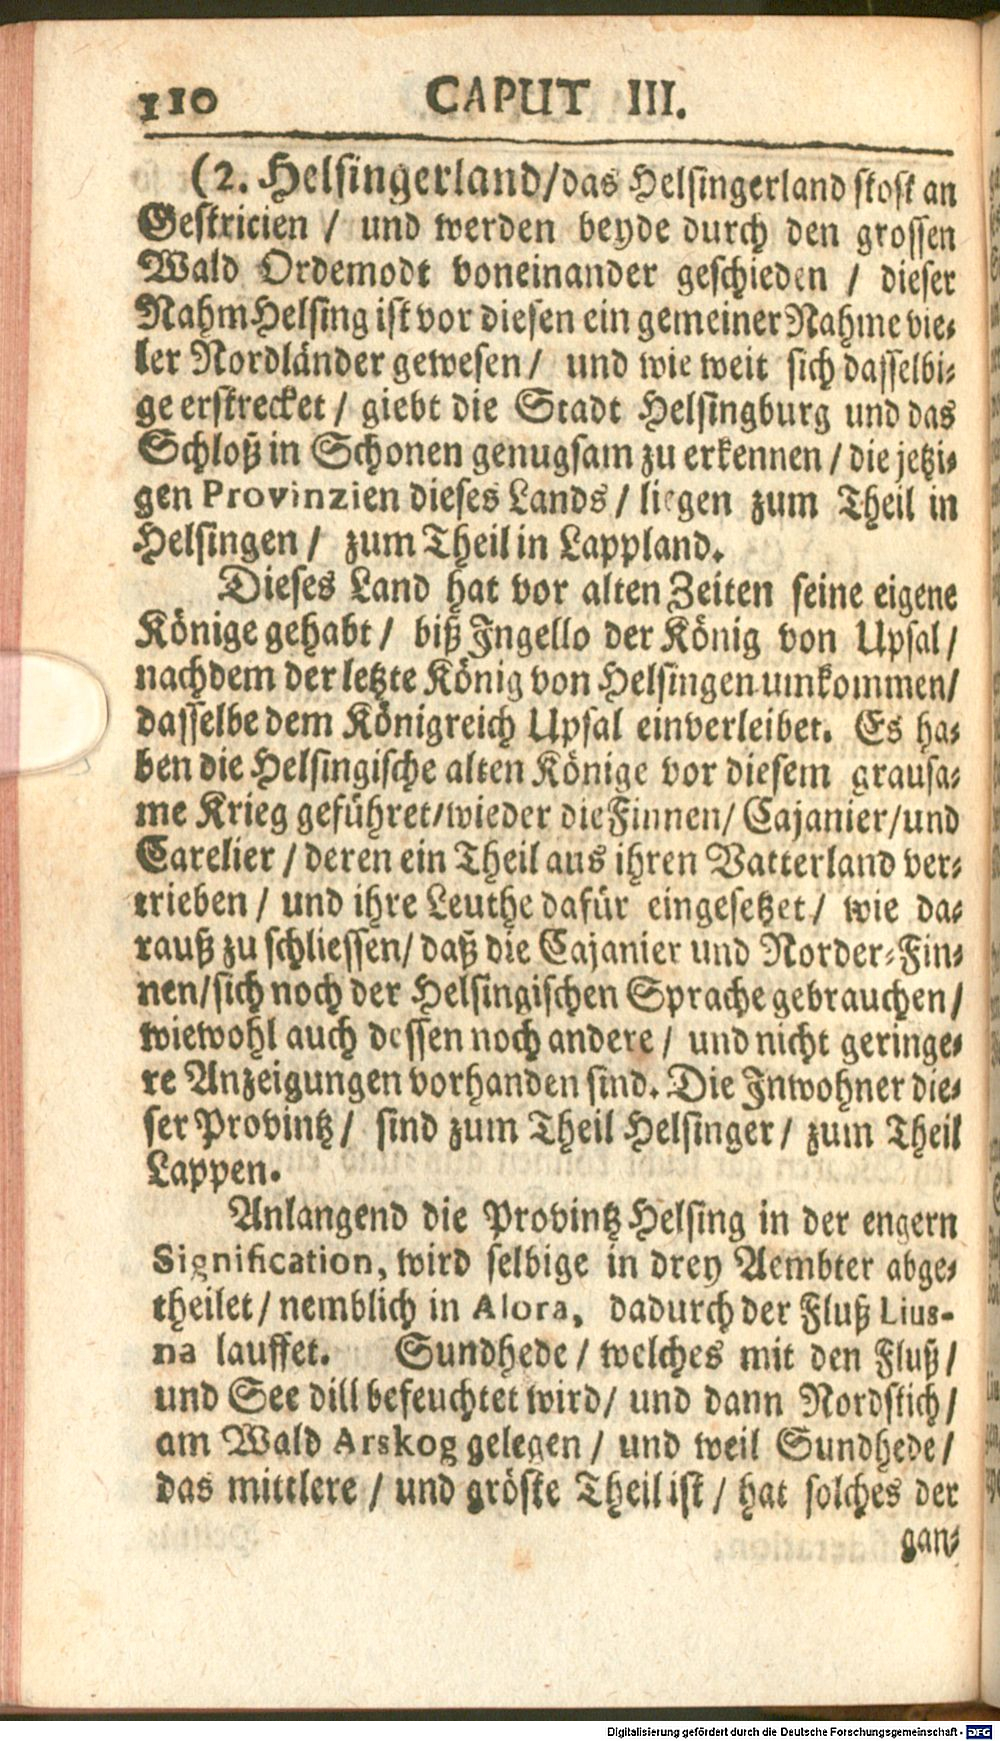 110 CAPUT III.
(2. Helsingerland/das Helsingerland stost an
Gestricien / und werden beyde durch den grossen
Wald Ordemodt voneinander geschieden / dieser
Nahm Helsing ist vor diesen ein gemeiner Nahme vie-
ler Nordländer gewesen / und wie weit sich dasselbi-
ge erstrecket / giebt die Stadt Helsingburg und das
Schloß in Schonen genugsam zu erkennen / die jetzi-
gen Provinzien dieses Lands / liegen zum Theil in
Helsingen / zum Theil in Lappland.
Dieses Land hat vor alten Zeiten seine eigene
Könige gehabt / biß Ingello der König von Upsal /
nachdem der letzte König von Helsingen umkommen/
dasselbe dem Königreich Upsal einverleibet. Es ha-
ben die Helsingische alten Könige vor diesem grausa-
me Krieg geführet/wieder die Finnen/ Cajanier/und
Carelier / deren ein Theil aus ihren Vatterland ver-
trieben / und ihre Leuthe dafür eingesetzet / wie da-
rauß zu schliessen/ daß die Cajanier und Norder-Fin-
nen/sich noch der Helsingischen Sprache gebrauchen /
wiewohl auch dessen noch andere / und nicht geringe-
re Anzeigungen vorhanden sind. Die Inwohner die-
ser Provintz / sind zum Theil Helsinger / zum Theil
Lappen.
Anlangend die Provintz Helsing in der engern
Signification, wird selbige in drey Aembter abge-
theilet / nemblich in Alora, dadurch der Fluß Lius-
na lauffet. Sundhede / welches mit den Fluß /
und See dill befeuchtet wird/ und dann Nordstich /
am Wald Arskog gelegen / und weil Sundhede /
das mittlere / und gröste Theil ist / hat solches der
gan-
Digitalisierung gefördert durch die Deutsche Forschungsgemeinschaft - DFG